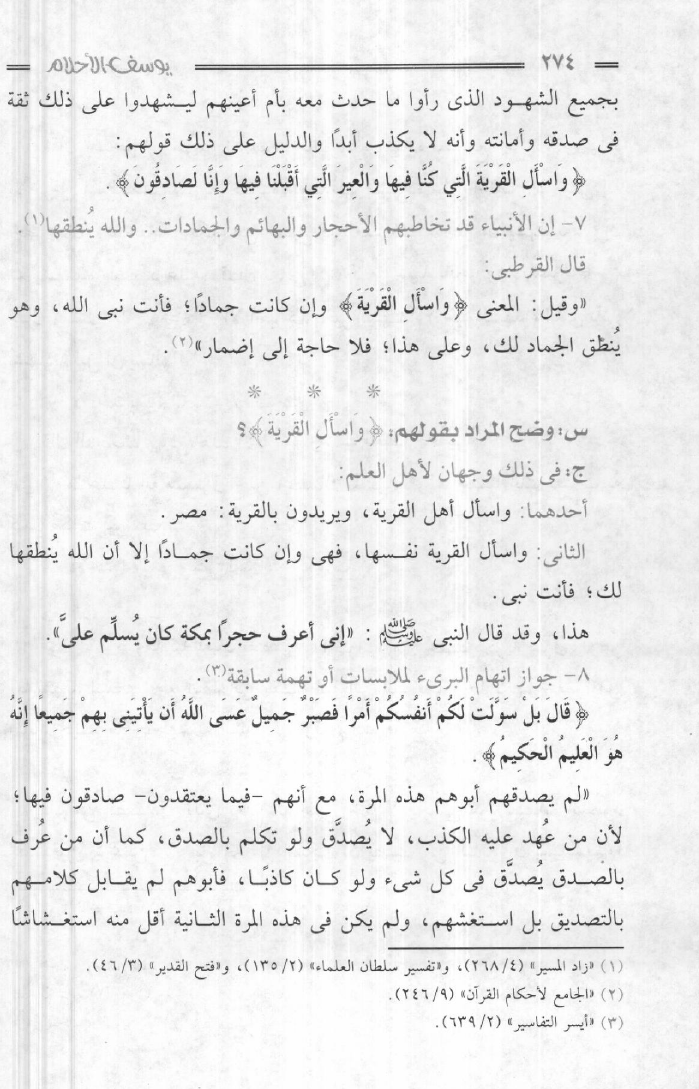 ٢٧٤ يوسف الأحلام
بجميع الشهود الذى رأوا ما حدث معه بأم أعينهم ليشهدوا على ذلك ثقة
فى صدقه وأمانته وأنه لا يكذب أبدًا والدليل على ذلك قولهم:
﴿ وَاسْأَلِ الْقَرْيَةَ الَّتِي كُنَّا فِيهَا وَالْعِيرَ الَّتِي أَقْبَلْنَا فِيهَا وَإِنَّا لَصَادِقُونَ ﴾ .
٧- إن الأنبياء قد تخاطبهم الأحجار والبهائم والجمادات.. والله يُنطقها(١).
قال القرطبى:
«وقيل: المعنى ﴿ وَاسْأَلِ الْقَرْيَةَ ﴾ وإن كانت جمادًا؛ فأنت نبى الله، وهو
يُنطْق الجماد لك، وعلى هذا؛ فلا حاجة إلى إضمار»(٢).
* * *
س: وضح المراد بقولهم: ﴿ وَاسْأَلِ الْقَرْيَةَ ﴾؟
ج: فى ذلك وجهان لأهل العلم:
أحدهما: واسأل أهل القرية، ويريدون بالقرية: مصر.
الثانى: واسأل القرية نفسها، فهى وإن كانت جمادًا إلا أن الله يُنطقها
لك؛ فأنت نبى.
هذا، وقد قال النبى ﷺ : «إنى أعرف حجرًا بمكة كان يُسلِّم علىَّ».
٨- جواز اتهام البرىء لملابسات أو تهمة سابقة(٣).
﴿ قَالَ بَلْ سَوَّلَتْ لَكُمْ أَنفُسُكُمْ أَمْرًا فَصَبْرٌ جَمِيلٌ عَسَى اللَّهُ أَن يَأْتِيَنِى بِهِمْ جَمِيعًا إِنَّهُ
هُوَ الْعَلِيمُ الْحَكِيمُ ﴾ .
«لم يصدقهم أبوهم هذه المرة، مع أنهم -فيما يعتقدون- صادقون فيها؛
لأن من عُهد عليه الكذب، لا يُصدَّق ولو تكلم بالصدق، كما أن من عُرف
بالصدق يُصدَّق فى كل شىء ولو كان كاذبًا، فأبوهم لم يقابل كلامهم
بالتصديق بل استغشهم، ولم يكن فى هذه المرة الثانية أقل منه استغشاشًا
(١) «زاد المسير» (٢٦٨/٤)، و«تفسير سلطان العلماء» (١٣٥/٢)، و«فتح القدير» (٤٦/٣).
(٢) «الجامع لأحكام القرآن» (٢٤٦/٩).
(٣) «أيسر التفاسير» (٦٣٩/٢).